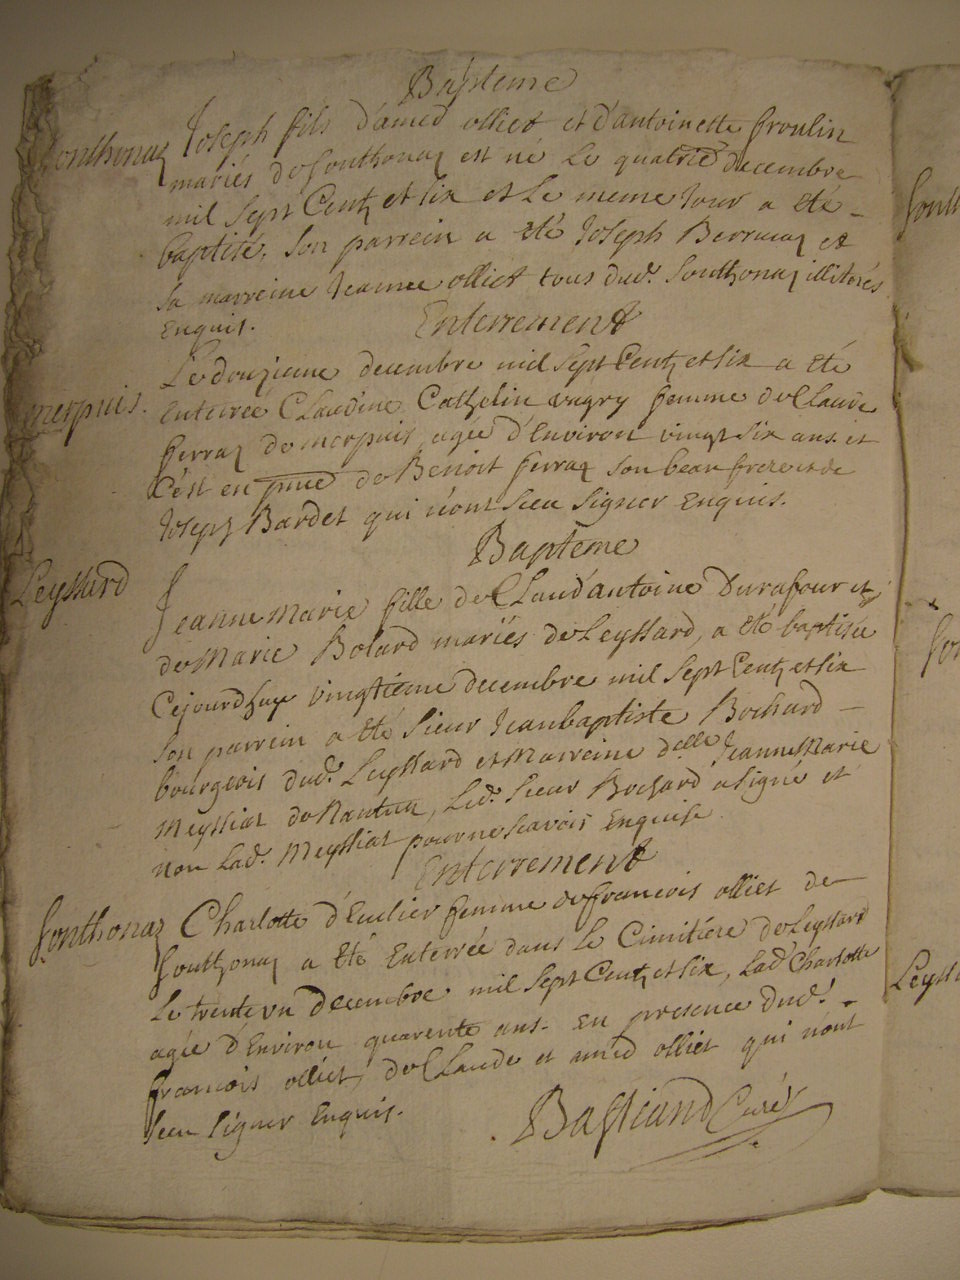 Bapteme
fonthonaz Joseph fils d'amed olliet et d'antoinette froulin
mariés de fonthonaz est né le quatrie decembre
mil sept Centz et six et Le meme Jour a eté
baptisé, son parrein a eté Joseph Berruaz et
sa marreine Jeanne olliet tous dud. fonthonaz illiterés
enquis.
Enterrement
Le douzieme decembre mil sept Centz et six a eté
merpuis. enterrée Claudine Cathelin vugry femme de Claude
ferraz de merpuis, agée d'environ vingt six ans et
C'est en pnce de Benoit ferraz son beau frere et de
Joseph Bardet qui n'ont sceu signer enquis.
Bapteme
Leyssard Jeanne Marie fille de Claud'antoine Durafour et
de Marie Bolard mariés de Leyssard, a eté baptisée
Cejourdhuy vingtieme decembre mil sept Centz et six
son parrein a eté sieur Jean baptiste Bochard
bourgeois dud. Leyssard et Marreine delle Jeanne Marie
Meyssiat de Nantua, Led. sieur Bochard a signé et
non Lad. Meyssiat pour ne scavoir enquise.
Enterrement
fonthonaz Charlotte d'Eulier femme de francois olliet de
fonthonaz a eté enterrée dans le Cimitiére de Leyssard
Le trente un decembre mil sept Centz et six, Lad. Charlotte
agée d'environ quarente ans. en presence dud.
francois olliet, de Claude et amed olliet qui n'ont
sceu signer enquis.
Bastiand Curé
fonth
fon
Leyss